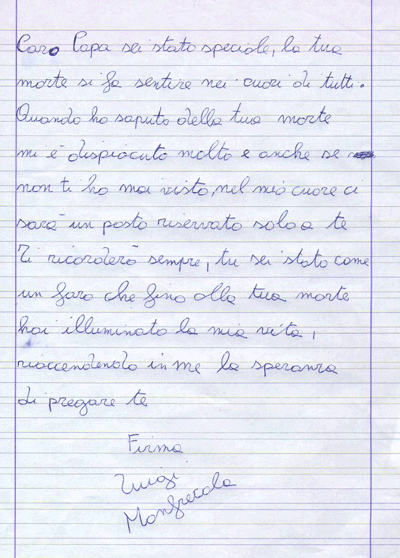 Caro Papa sei stato speciale, la tua
morte si fa sentire nei cuori di tutti.
Quando ho saputo della tua morte
mi è dispiaciuto molto e anche se
non ti ho mai visto, nel mio cuore ci
sarà un posto riservato solo a te
Ti ricorderò sempre, tu sei stato come
un faro che fino alla tua morte
hai illuminato la mia vita,
riaccendendo in me la speranza
di pregare te
Firma
Luigi
Manfrecola